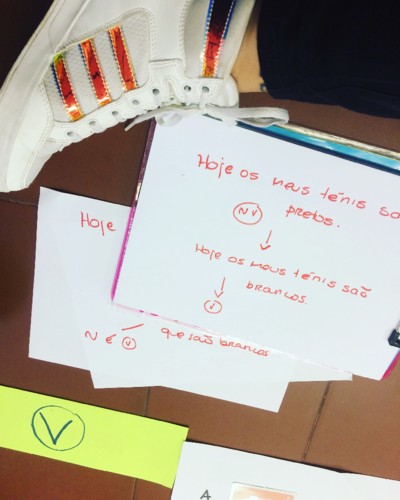 Hoje os meus ténis são
NV pretos.
Hoje os meus ténis são
brancos.
V
Hoje
N é V que são brancos
V
A